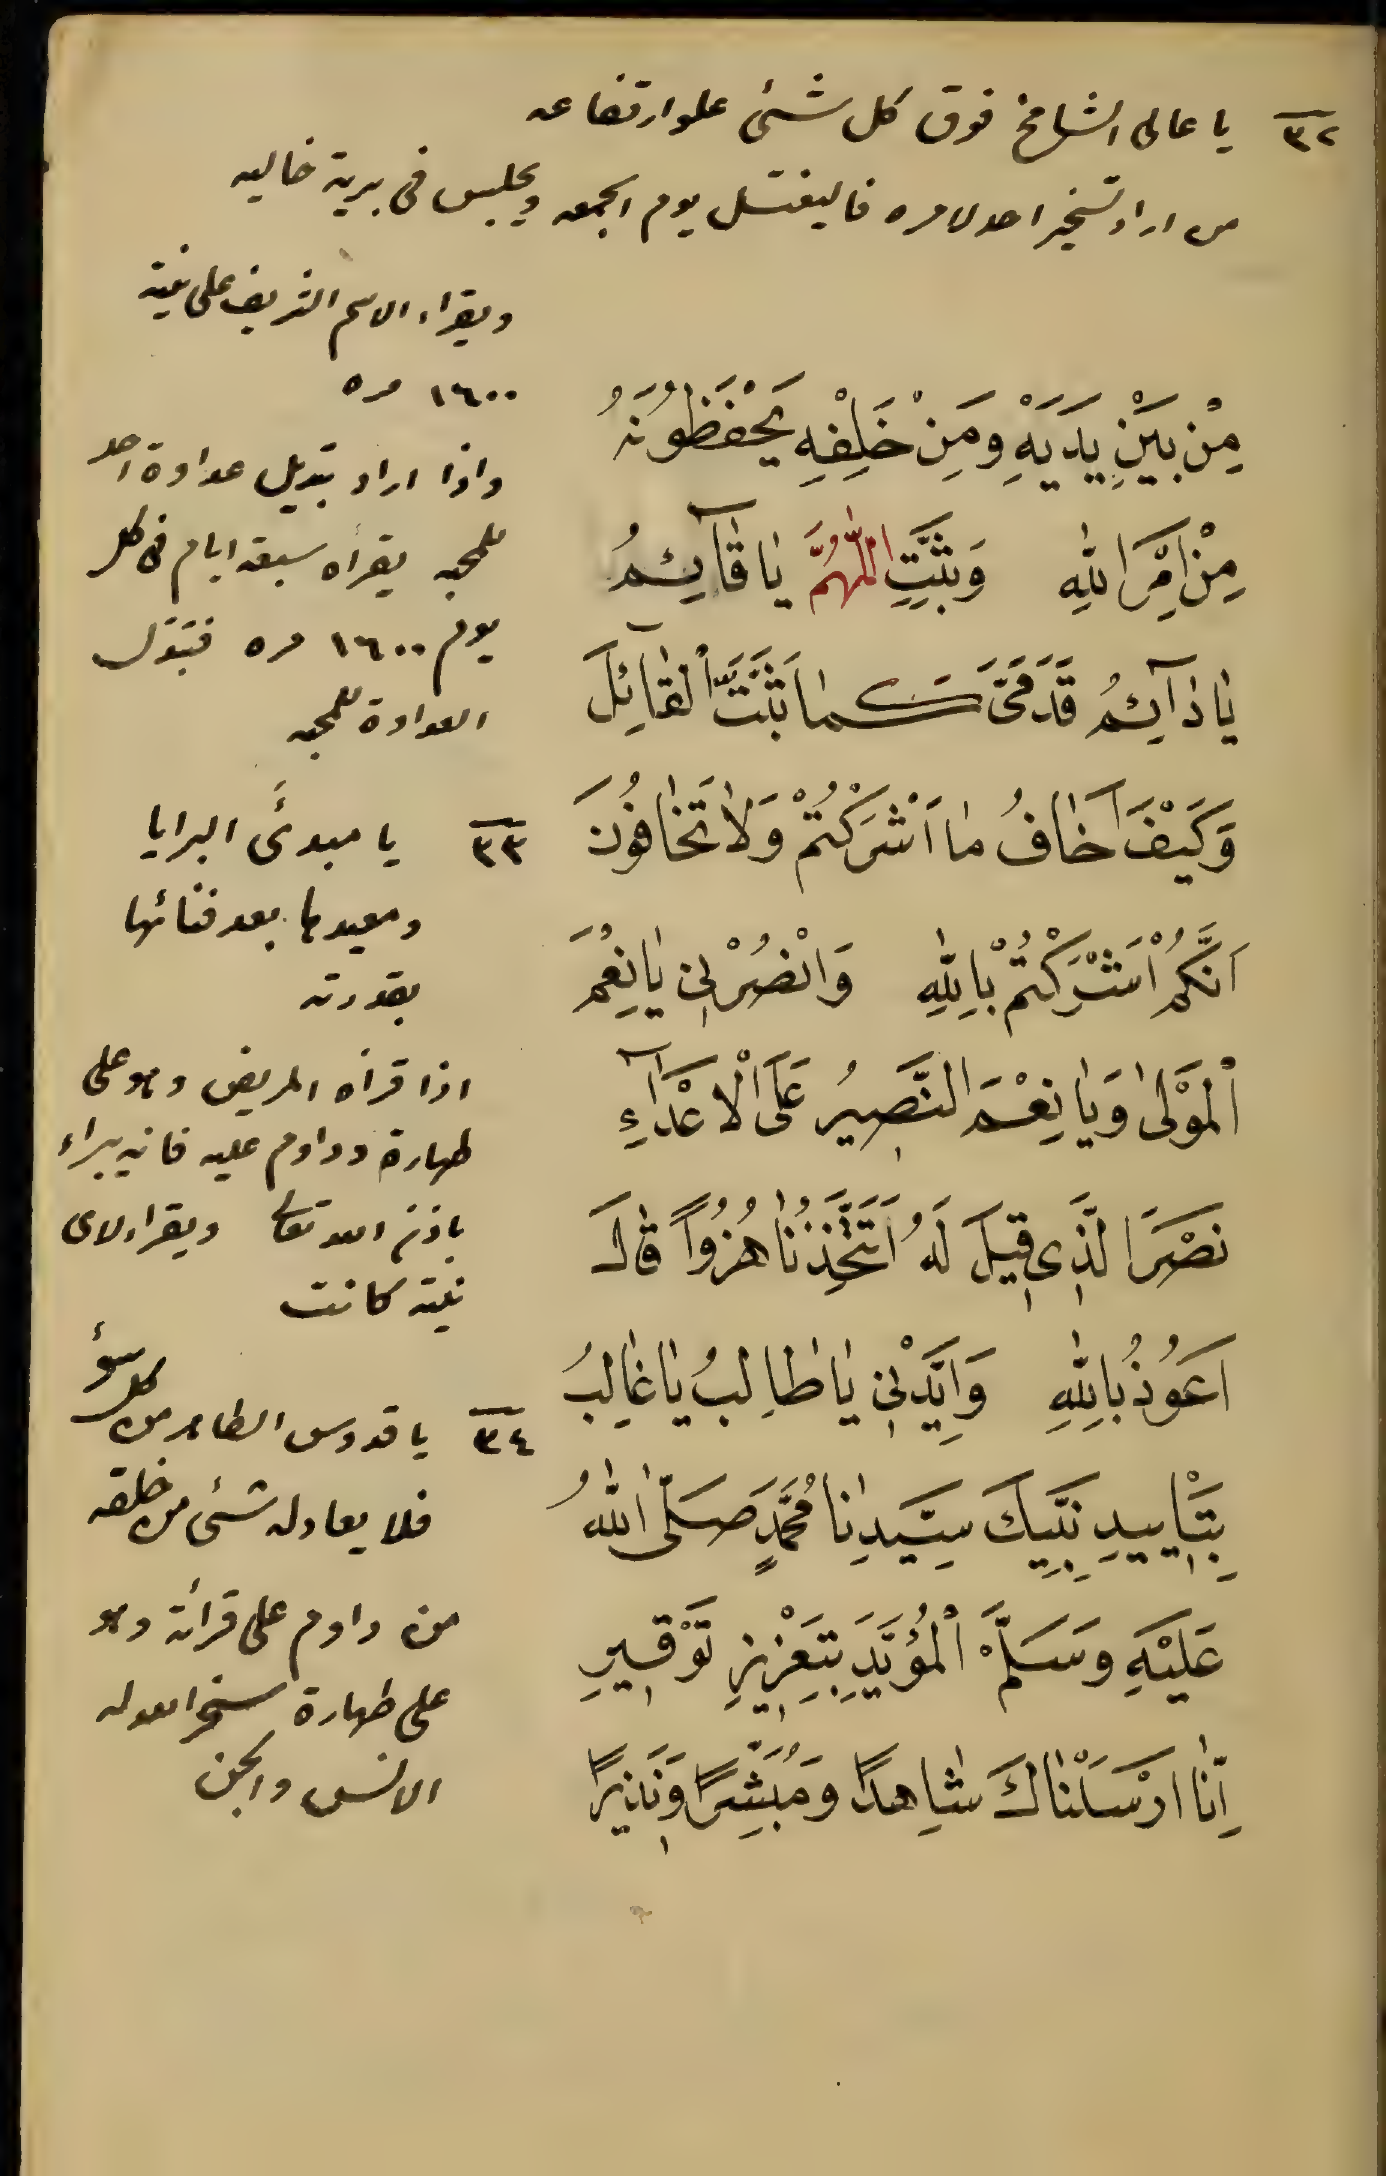 ٣٢ يا عالى الشامخ فوق كل شئى علو ارتفاعه
من اراد تسخير احد لامره فاليغتسل يوم الجمعه ويجلس فى برية خاليه
ويقراء الاسم الشريف على نية
١٦٠٠ مره
واذا اراد تبديل عداوة احد
للمحبه يقرأه سبعة ايام فى كل
يوم ١٦٠٠ مره فتبدل
العداوة للمحبه
٣٣ يا مبدئَ البرايا
ومعيدها بعد فنائها
بقدرته
اذا قرأه المريض وهو على
طهارة وداوم عليه فانه يبراء
باذن الله تعالى ويقراء لاى
نية كانت
٣٤ يا قدوس الطاهر من كل سوء
فلا يعادله شئى من خلقه
من داوم على قرائة وهو
على طهارة سخر الله له
الانس والجن
مِنْ بَيْنِ يَدَيْهِ وَمِنْ خَلْفِهِ يَحْفَظُونَهُ
مِنْ اَمْرِ اللهِ وَثَبِّتِ اللّٰهُمَّ يَا قَآئِمُ
يَا دَآئِمُ قَدَمَىَّ كَمَا ثَبَّتَّ الْقَائِلَ
وَكَيْفَ اَخَافُ مَا اَشْرَكْتُمْ وَلَا تَخَافُونَ
اَنَّكُمْ اَشْرَكْتُمْ بِاللهِ وَانْصُرْنِى يَا نِعْمَ
الْمَوْلٰى وَيَا نِعْمَ النَّصِيرُ عَلَى الْاَعْدَآءِ
نَصْرَ الَّذِى قِيلَ لَهُ اَتَتَّخِذُنَا هُزُوًا قَالَ
اَعُوذُ بِاللهِ وَاَيِّدْنِى يَا طَالِبُ يَا غَالِبُ
بِتَاْيِيدِ نَبِيِّكَ سَيِّدِنَا مُحَمَّدٍ صَلَّى اللهُ
عَلَيْهِ وَسَلَّمَ الْمُؤَيَّدِ بِتَعْزِيزِ تَوْقِيرِ
اِنَّا اَرْسَلْنَاكَ شَاهِدًا وَمُبَشِّرًا وَنَذِيرًا